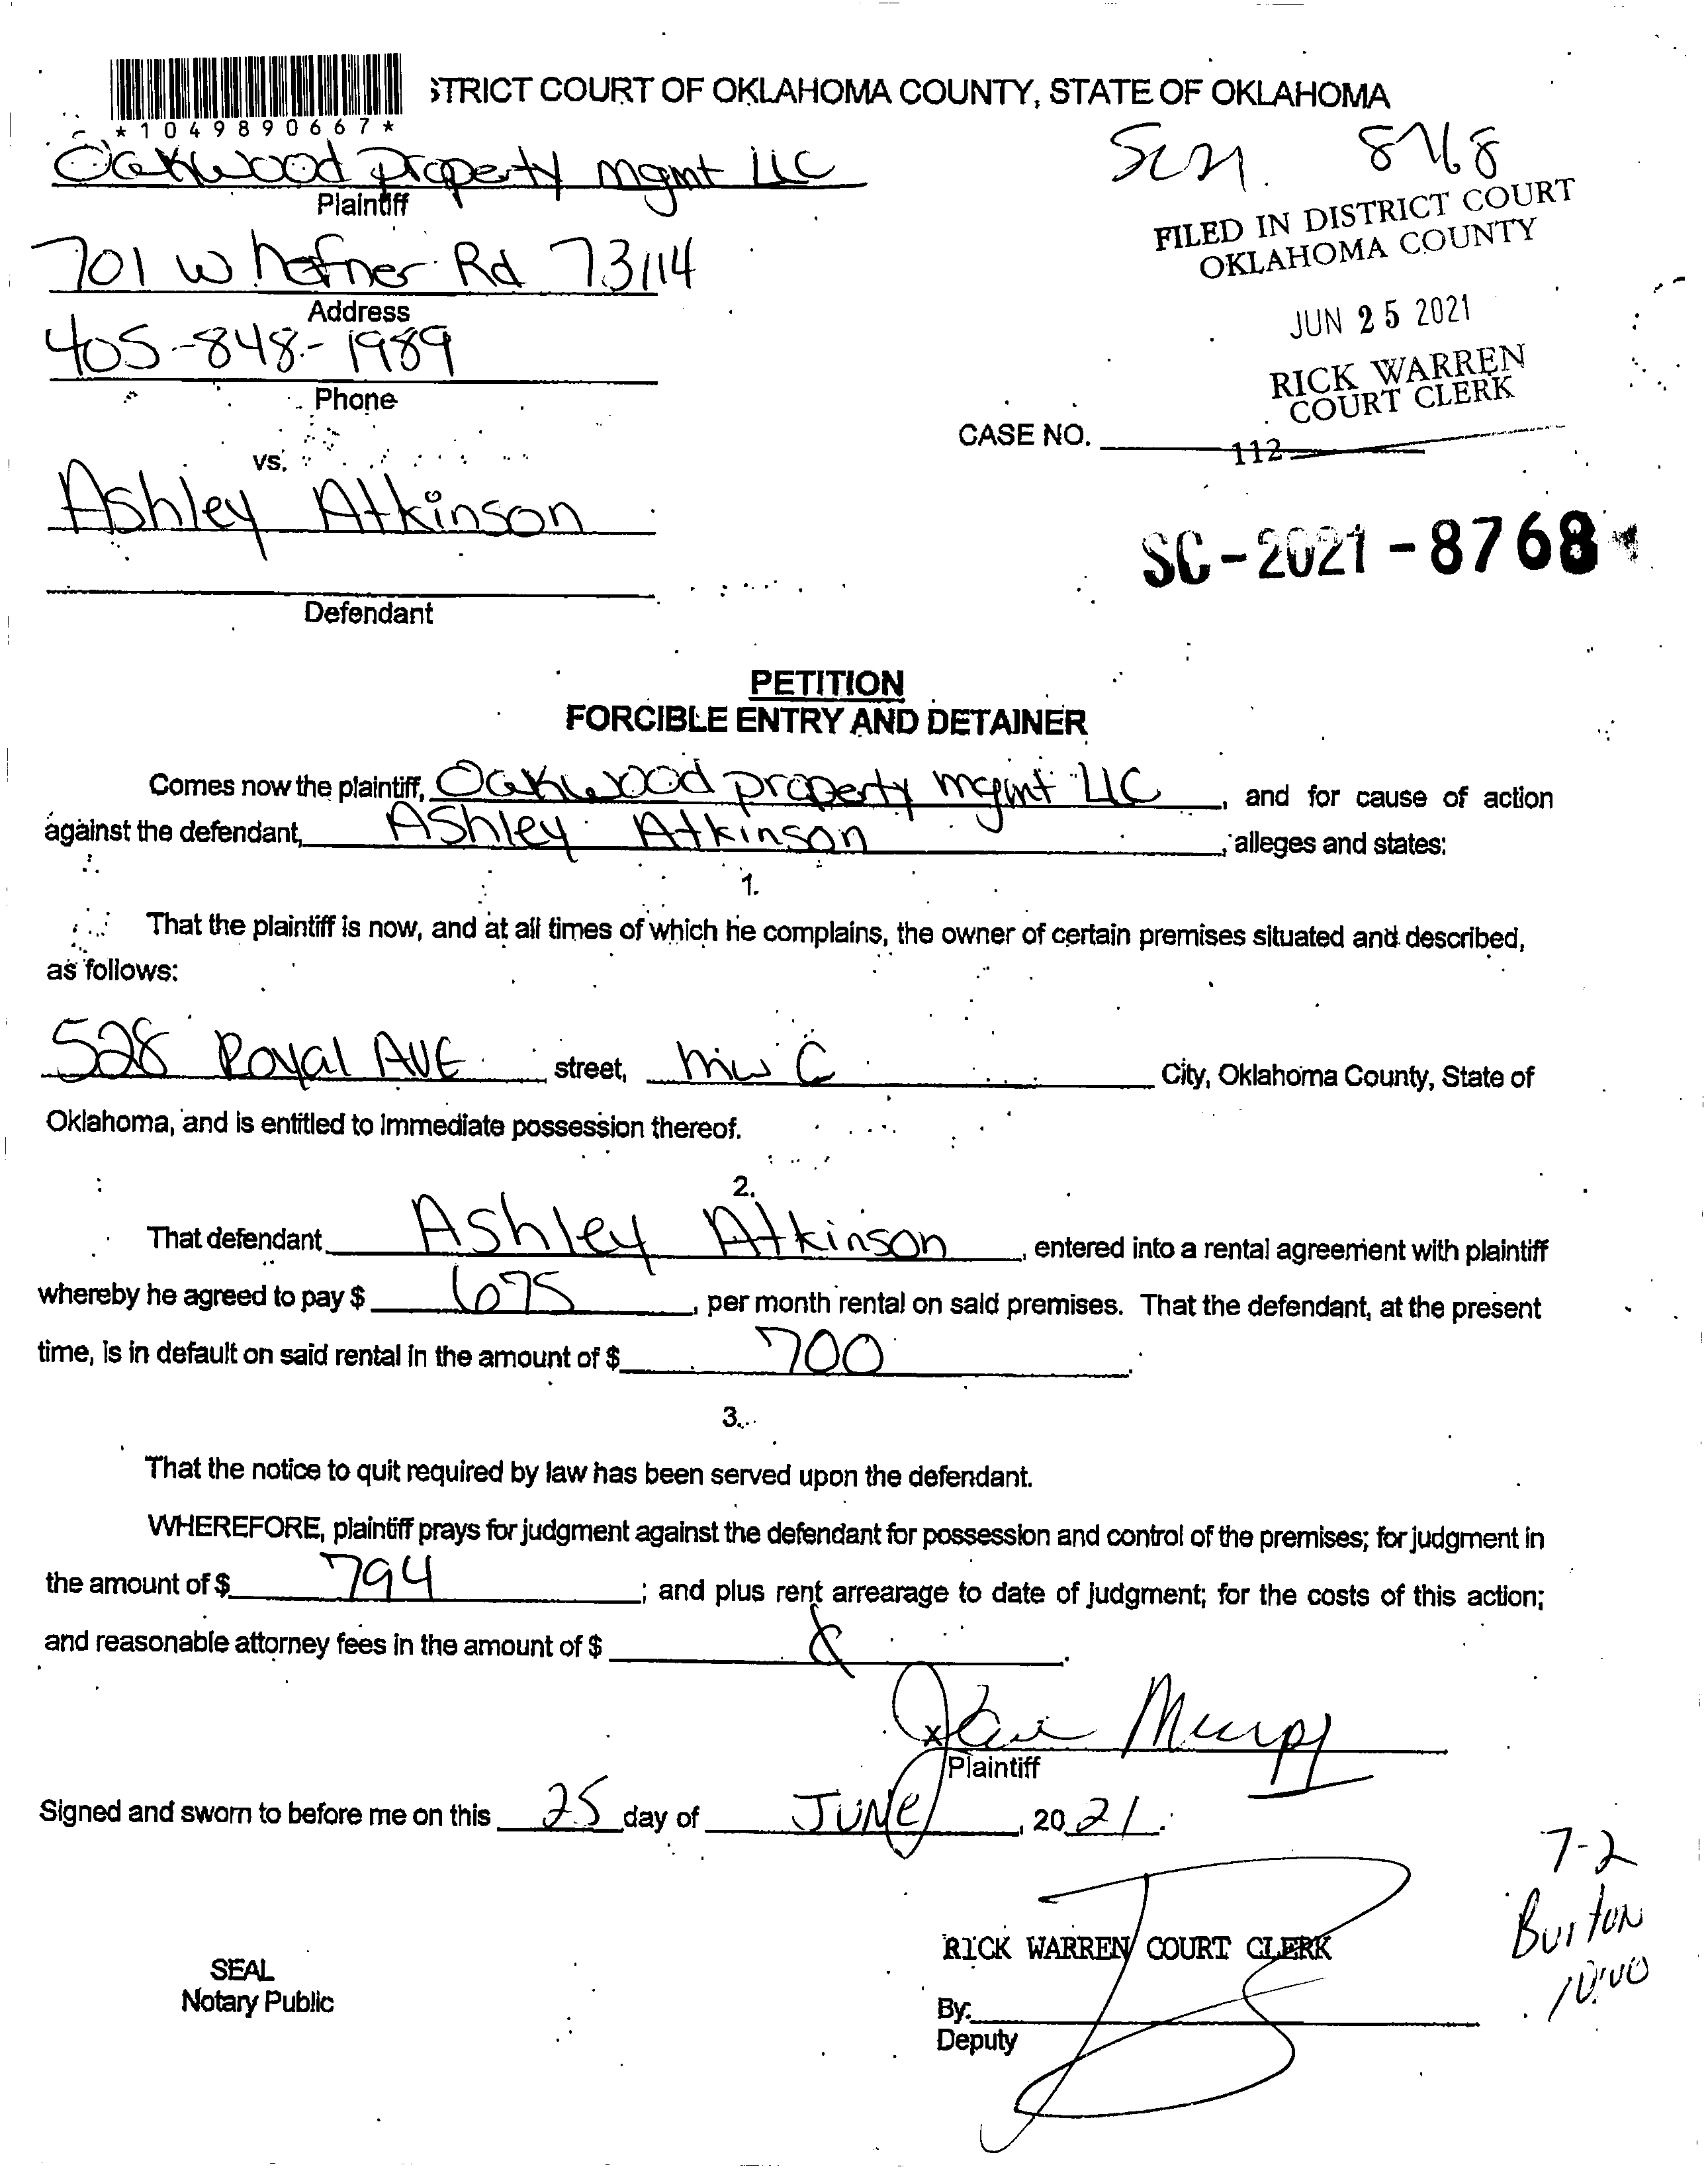 STRICT COURT OF OKLAHOMA COUNTY, STATE OF OKLAHOMA
*1049890667*
Oakwood property mgmt LLC
Plaintiff
701 W hefner Rd 73114
Address
405-848-1989
Phone
FILED IN DISTRICT COURT
OKLAHOMA COUNTY
JUN 25 2021
RICK WARREN
COURT CLERK
CASE NO.
112
vs.
Ashley Atkinson
Defendant
SC-2021-8768
PETITION
FORCIBLE ENTRY AND DETAINER
Comes now the plaintiff, Oakwood property mgmt LLC, and for cause of action
against the defendant, Ashley Atkinson, alleges and states:
1.
That the plaintiff is now, and at all times of which he complains, the owner of certain premises situated and described,
as follows:
528 Royal AVE street, MWC City, Oklahoma County, State of
Oklahoma, and is entitled to immediate possession thereof.
2.
That defendant Ashley Atkinson, entered into a rental agreement with plaintiff
whereby he agreed to pay $ 675, per month rental on said premises. That the defendant, at the present
time, is in default on said rental in the amount of $ 700.
3.
That the notice to quit required by law has been served upon the defendant.
WHEREFORE, plaintiff prays for judgment against the defendant for possession and control of the premises; for judgment in
the amount of $ 794; and plus rent arrearage to date of judgment; for the costs of this action;
and reasonable attorney fees in the amount of $
x
Plaintiff
Signed and sworn to before me on this 25 day of JUNE, 2021.
7-2
Burton
10:00
RICK WARREN COURT CLERK
SEAL
Notary Public
By:
Deputy